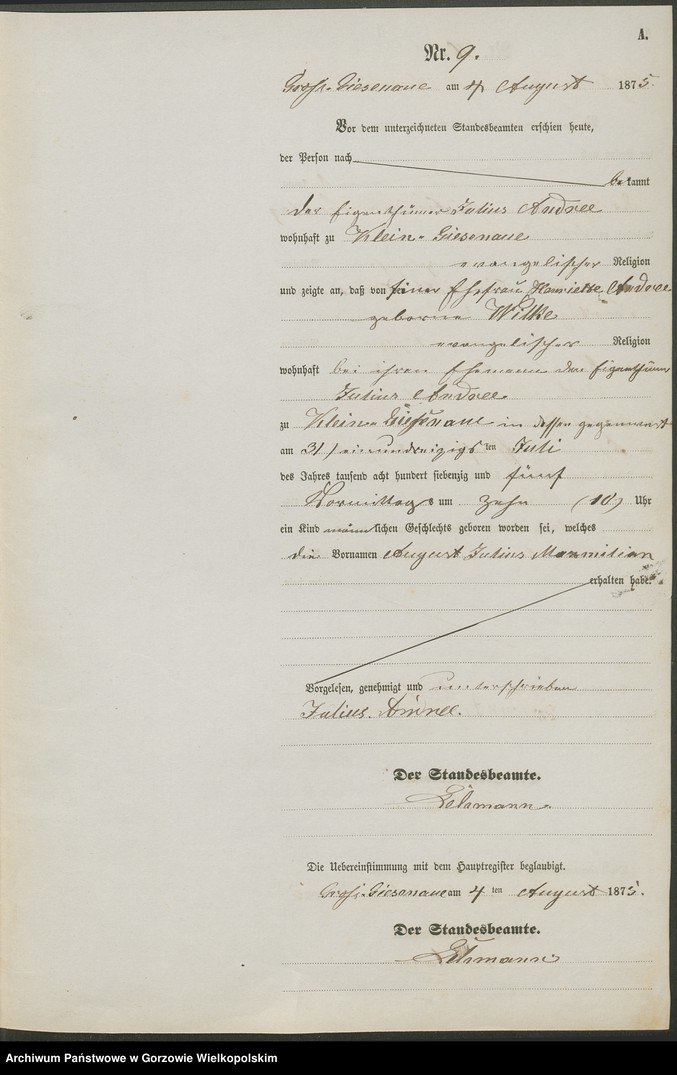 A.
Nr. 9.
Groß-Giesenaue am 4 August 1875.
Vor dem unterzeichneten Standesbeamten erschien heute,
der Person nach
bekannt
der Eigenthümer Julius Andree
wohnhaft zu Klein-Giesenaue
evangelischer Religion
und zeigte an, daß von seiner Ehefrau Henriette Andree
geborne Wilke
evangelischer Religion
wohnhaft bei ihren Ehemann den Eigenthümer
Julius Andree
zu Klein-Giesenaue in dessen gegenwart
am 31/einunddreizigsten Juli
des Jahres tausend acht hundert siebenzig und fünf
Vormittags um Zehn (10) Uhr
ein Kind männlichen Geschlechts geboren worden sei, welches
die Vornamen August Julius Maxmilian
erhalten habe.
Vorgelesen, genehmigt und unterschrieben
Julius.
Der Standesbeamte.
Lehmann.
Die Uebereinstimmung mit dem Hauptregister beglaubigt.
Groß-Giesenaue am 4 ten August 1875.
Der Standesbeamte.
Lehmann
Archiwum Państwowe w Gorzowie Wielkopolskim